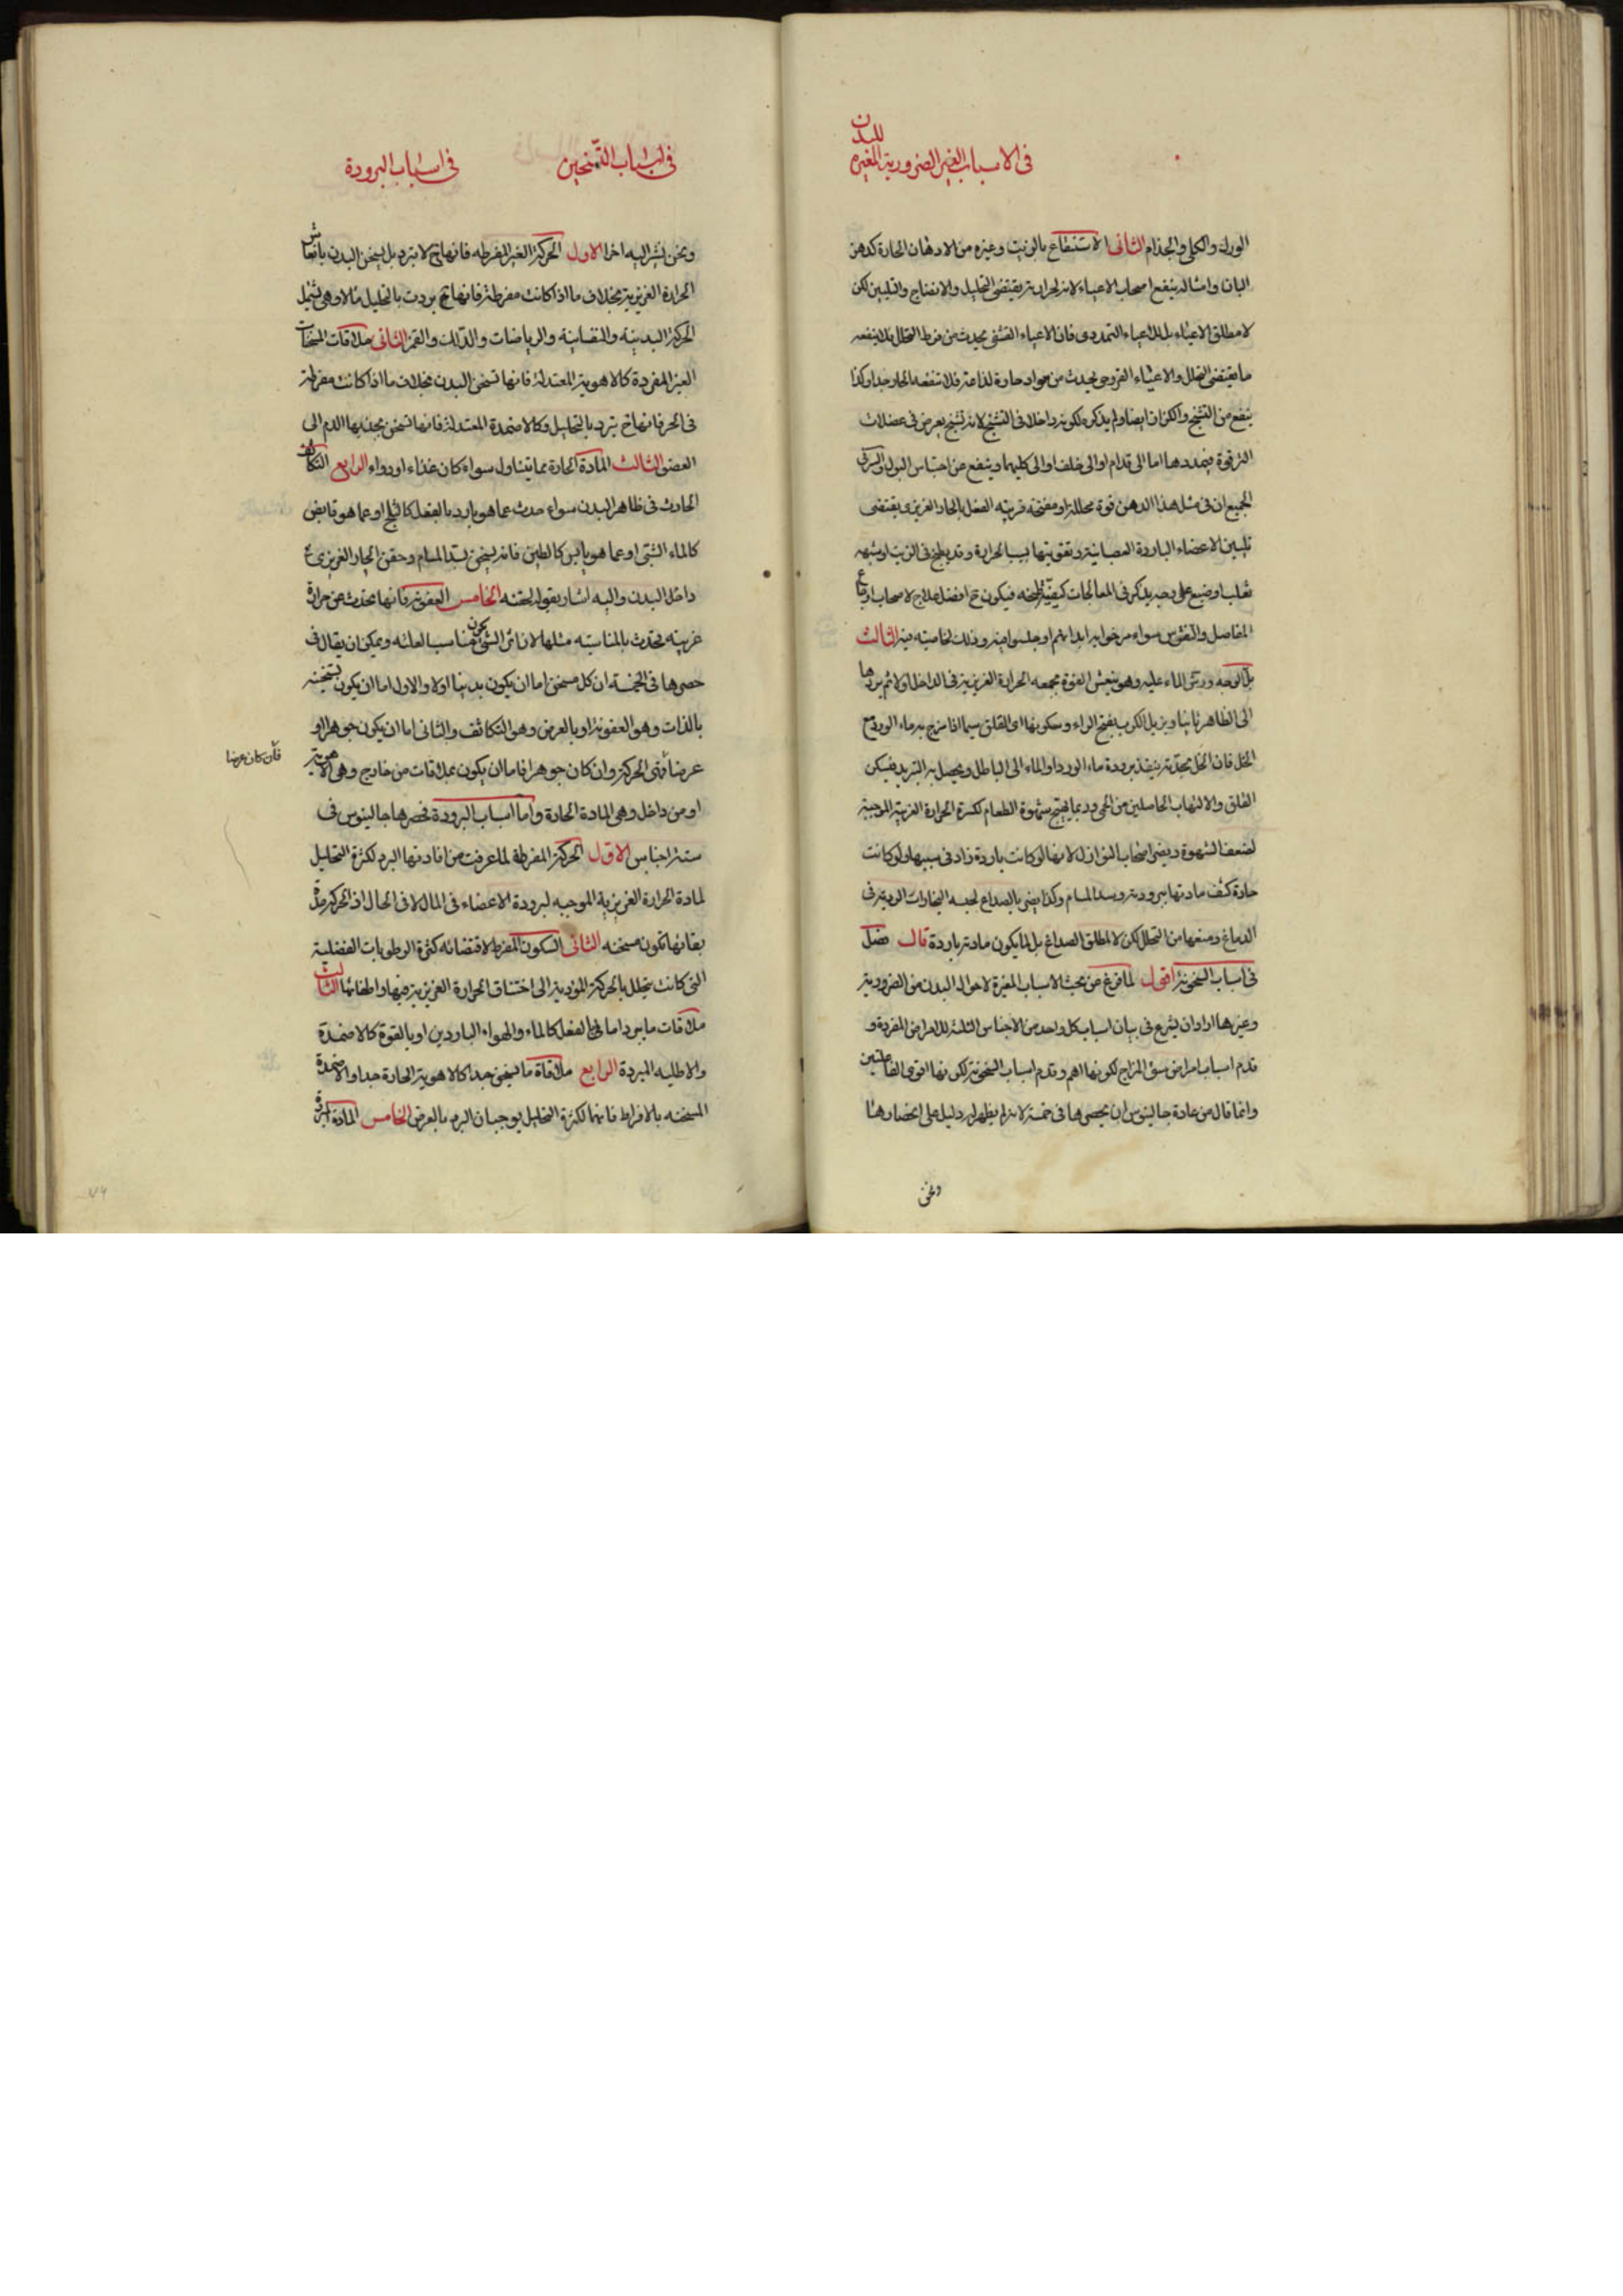 فى الاسباب الغير الضرورية المغيره
للبدن
الورك والكلى والجذام الثانى الاستنقاع بالزيت وغيره من الادهان الحارة كدهن
البان وامثاله ينفع اصحاب الاعياء لانه لحرارته يقتضى التحليل والانفتاح والتليين لكن
لا مطلق الاعياء بل الاعياء التمددى فان الاعياء القشفى يحدث من فرط التحلل فلا ينفعه
ما يقتضى التحلل والاعياء القروحى يحدث من مواد حارة لذاعة فلا تنفعه الحار جدا وكذا
ينفع من التشنج والكزاز ايضا ولم يذكره لكونه داخلا فى التشنج لانه تشنج يعرض فى عضلات
الترقوة فيمددها اما الى قدام او الى خلف او الى كليهما وينفع من احتباس البول والسر فى
الجميع ان فى مثل هذا الدهن قوة محللة او مفتحة قريبة الفعل بالحار الغريزى يقتضى
تليين الاعضاء الباردة العصبانية وتقويتها بسبب الحرارة وقد يطبخ فى الزيت او شبهه
ثعلب او ضبع على وجه يذكر فى المعالجات كيفية طبخه فيكون ح افضل علاج لاصحاب اوجاع
المفاصل والنقرس سواء مرخوا به ابدانهم او جلسوا فيه وذلك لخاصيته فيه الثالث
بل الوجه ورش الماء عليه وهو ينعش القوة بجمعه الحرارة الغريزية فى الداخل اولا ثم يردها
الى الظاهر ثانيا ويزيل الكرب بفتح الراء وسكونها اى القلق سيما اذا مزج به ماء الورد مع
الخل فان الخل بحدته ينفذ برودة ماء الورد او الماء الى الباطل ويحصل به التبريد فيسكن
القلق والالتهاب الحاصلين من الحمى وربما يهيج شهوة الطعام لكسرة الحرارة الغريبة الموجبة
لضعف الشهوة ويضر اصحاب النوازل لانها لو كانت باردة زاد فى سببها ولو كانت
حادة كثف مادتها ببرودته وسد المسام وكذا يضر بالصداع لحبسه البخارات الردية فى
الدماغ ومنعها من التحلل لكن لا مطلق الصداع بل لما يكون مادته باردة قال فصل
فى اسباب السخونة اقول لما فرغ من بحث الاسباب المغيرة لاحوال البدن من الضرورية
وغيرها اراد ان يشرع فى بيان اسباب كل واحد من الاجناس الثلثة للامراض المفردة و
قدم اسباب امراض سوء المزاج لكونها اهم وقدم اسباب السخونة لكونها اقوى الفاعلتين
وانما قال من عادة جالينوس ان يحصرها فى خمسة لانه لم يظهر له دليل على انحصارها
ونحن
فى اسباب التسخين
فى اسباب البرودة
ونحن نشير اليه اخرا الاول الحركة الغير المفرطه فانها ح لا تبرد بل تسخن البدن بانعاش
الحرارة الغريزية بخلاف ما اذا كانت مفرطة فانها ح بردت بالتحليل مالا وهى تشمل
الحركة البدنية والنفسانية والرياضات والدلك والغمز الثانى ملاقات المسخنات
الغير المفردة كالاهوية المعتدلة فانها تسخن البدن بخلاف ما اذا كانت مفرطة
فى الحر فانها ح تبرد بالتحليل وكالاضمدة المعتدلة فانها تسخن بجذبها الدم الى
العضو الثالث المادة الحارة مما يتناول سواء كان غذاء او دواء الرابع التكاثف
الحادث فى ظاهر البدن سواء حدث عما هو بارد بالفعل كالثلج او عما هو قابض
كالماء الشبى او عما هو يابس كالطين فانه يسخن بسد المسام وحقن الحار الغريزى
داخل البدن واليه اشار بقوله لحقنه الخامس العفونة فانها تحدث عن حرارة
غريبه تحدث بالمناسبه مثلها لان اثر الشئ يكون مناسبا لعلته ويمكن ان يقال فى
حصرها فى الخمسة ان كل مسخن اما ان يكون بدنيا او لا والاول اما ان يكون تسخينه
بالذات وهو العفونة او بالعرض وهو التكاثف والثانى اما ان يكون جوهرا او
عرضا فهى الحركة وان كان جوهرا فاما ان يكون بملاقات من خارج وهى الاهوية
فان كان عرضا
او من داخل وهى المادة الحارة واما اسباب البرودة فحصرها جالينوس فى
ستة اجناس الاول الحركة المفرطة لما عرفت من افادتها البرد لكثرة التحليل
لمادة الحرارة الغريزية الموجبه لبرودة الاعضاء فى المال لا فى الحال اذ الحركة مدة
بقائها تكون مسخنه الثانى السكون المفرط لاقتضائه كثرة الرطوبات الفضلية
التى كانت يتحلل بالحركة المؤدية الى اختناق الحرارة الغريزية فيها واطفائها الثالث
ملاقات ما يبرد اما فى الفعل كالماء والهواء الباردين او بالقوة كالاضمدة
والاطليه المبردة الرابع ملاقاة ما يسخن جدا كالاهوية الحارة جدا والاضمدة
المسخنه بالافراط فانها لكثرة التحليل يوجبان البرد بالعرض الخامس المادة